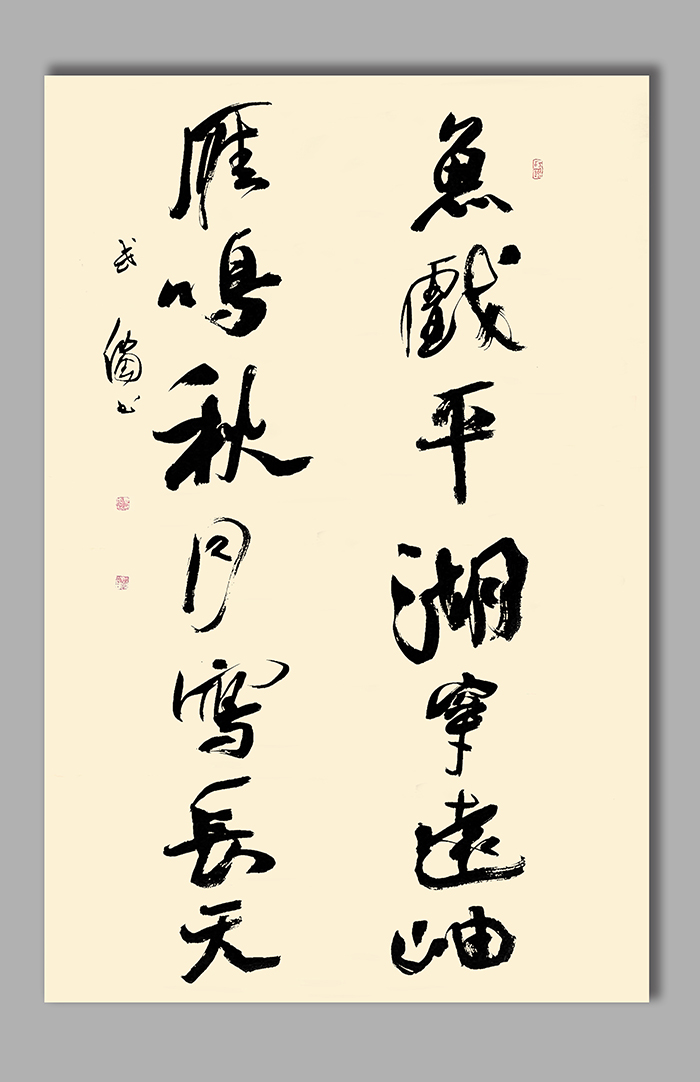 魚戲平湖穿遠岫
雁鳴秋月寫長天
武書